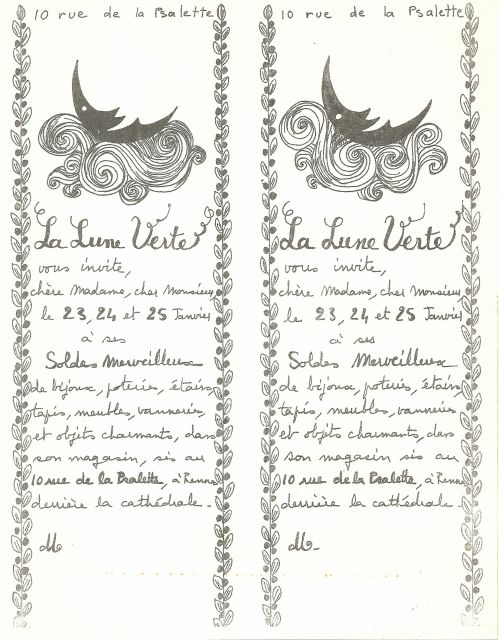 10 rue de la Psalette
La Lune Verte
vous invite,
chère Madame, cher Monsieur,
le 23, 24 et 25 Janvier
à ses
Soldes Merveilleux
de bijoux, poteries, étains,
tapis, meubles, vanneries,
et objets charmants, dans
son magasin, sis au
10 rue de la Psalette, à Rennes
derrière la cathédrale.
10 rue de la Psalette
La Lune Verte
vous invite,
chère Madame, cher Monsieur,
le 23, 24 et 25 Janvier
à ses
Soldes Merveilleux
de bijoux, poteries, étains,
tapis, meubles, vanneries
et objets charmants, dans
son magasin sis au
10 rue de la Psalette, à Rennes
derrière la cathédrale.